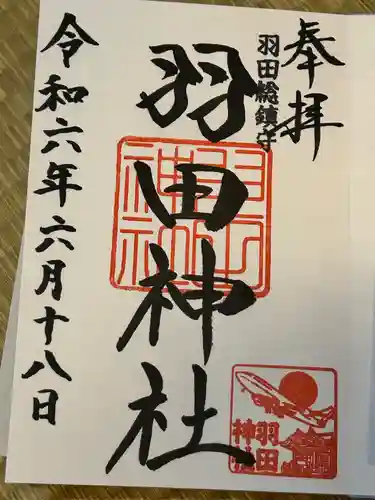 奉拝
羽田総鎮守
羽田神社
羽田神社
令和六年六月十八日
羽田
神社